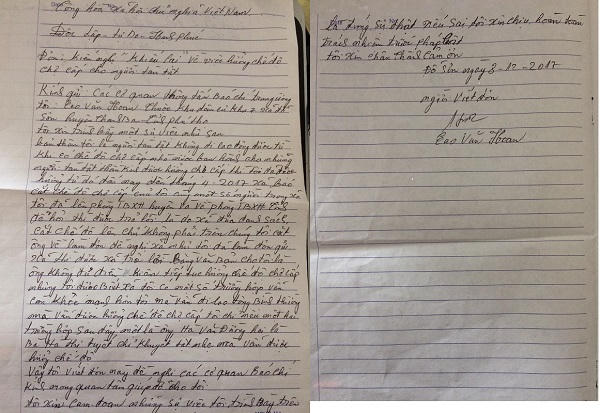 Cộng hòa xã hội chủ nghĩa Việt Nam
Độc lập - tự do - Hạnh phúc
Đơn: Kiến nghị "Khiếu lại" về việc hưởng chế độ
chế cấp cho người tàn tật
Kính gửi: Các cơ quan thông tấn Báo chí trung ương
tôi: Cao Văn Hoan thuộc khu dân cư khu 2
Sơn huyện Thanh Ba - tỉnh phú thọ
tôi xin trình bày một sự việc như sau
bản thân tôi là người tàn tật không đi lao động được từ
khi có chế độ chế cấp nhà nước ban hành cho những
người tàn tật thần kinh được hưởng chế cấp thì tôi đã được
hưởng từ đó đến nay đến tháng 4-2017 xã Báo
cắt chế độ chế cấp của tôi cùng một số người trong xã
tôi đã lên phòng TBXH huyện và về phòng TBXH tỉnh
để hỏi thì được trả lời là do xã đưa danh sách
cắt chế độ lên chứ không phải trên chúng tôi cắt
ông về làm đơn đề nghị xã nhà tôi đã làm đơn gửi
xã thì được xã trả lời bằng văn bản cho tôi là
ông không đủ điều kiện tiếp tục hưởng chế độ chế cấp
nhưng tôi được biết là tôi có một số trường hợp vẫn
còn khỏe mạnh hơn tôi mà vẫn đi lao động bình thường
mà vẫn được hưởng chế độ chế cấp tôi chỉ nêu một hai
trường hợp sau đây một là ông Hà Văn Đăng hai là
Bà Hà thị tuyết chỉ khuyết tật nhẹ mà vẫn được
hưởng chế độ
Vậy tôi viết đơn này đề nghị các cơ quan Báo chí
kính mong quan tâm giúp đỡ cho tôi
tôi xin cam đoan những sự việc tôi trình bày trên
là đúng sự thật nếu sai tôi xin chịu hoàn toàn
trách nhiệm trước pháp luật
tôi xin chân thành cảm ơn
Đỗ Sơn ngày 3-12-2017
người viết đơn
Cao Văn Hoan